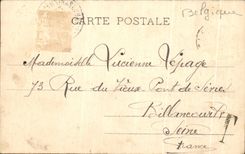 CARTE POSTALE
Belgique
Mademoiselle Lucienne Lepage
73 Rue du Vieux Pont de Sèvres
Billancourt
Seine
France
T